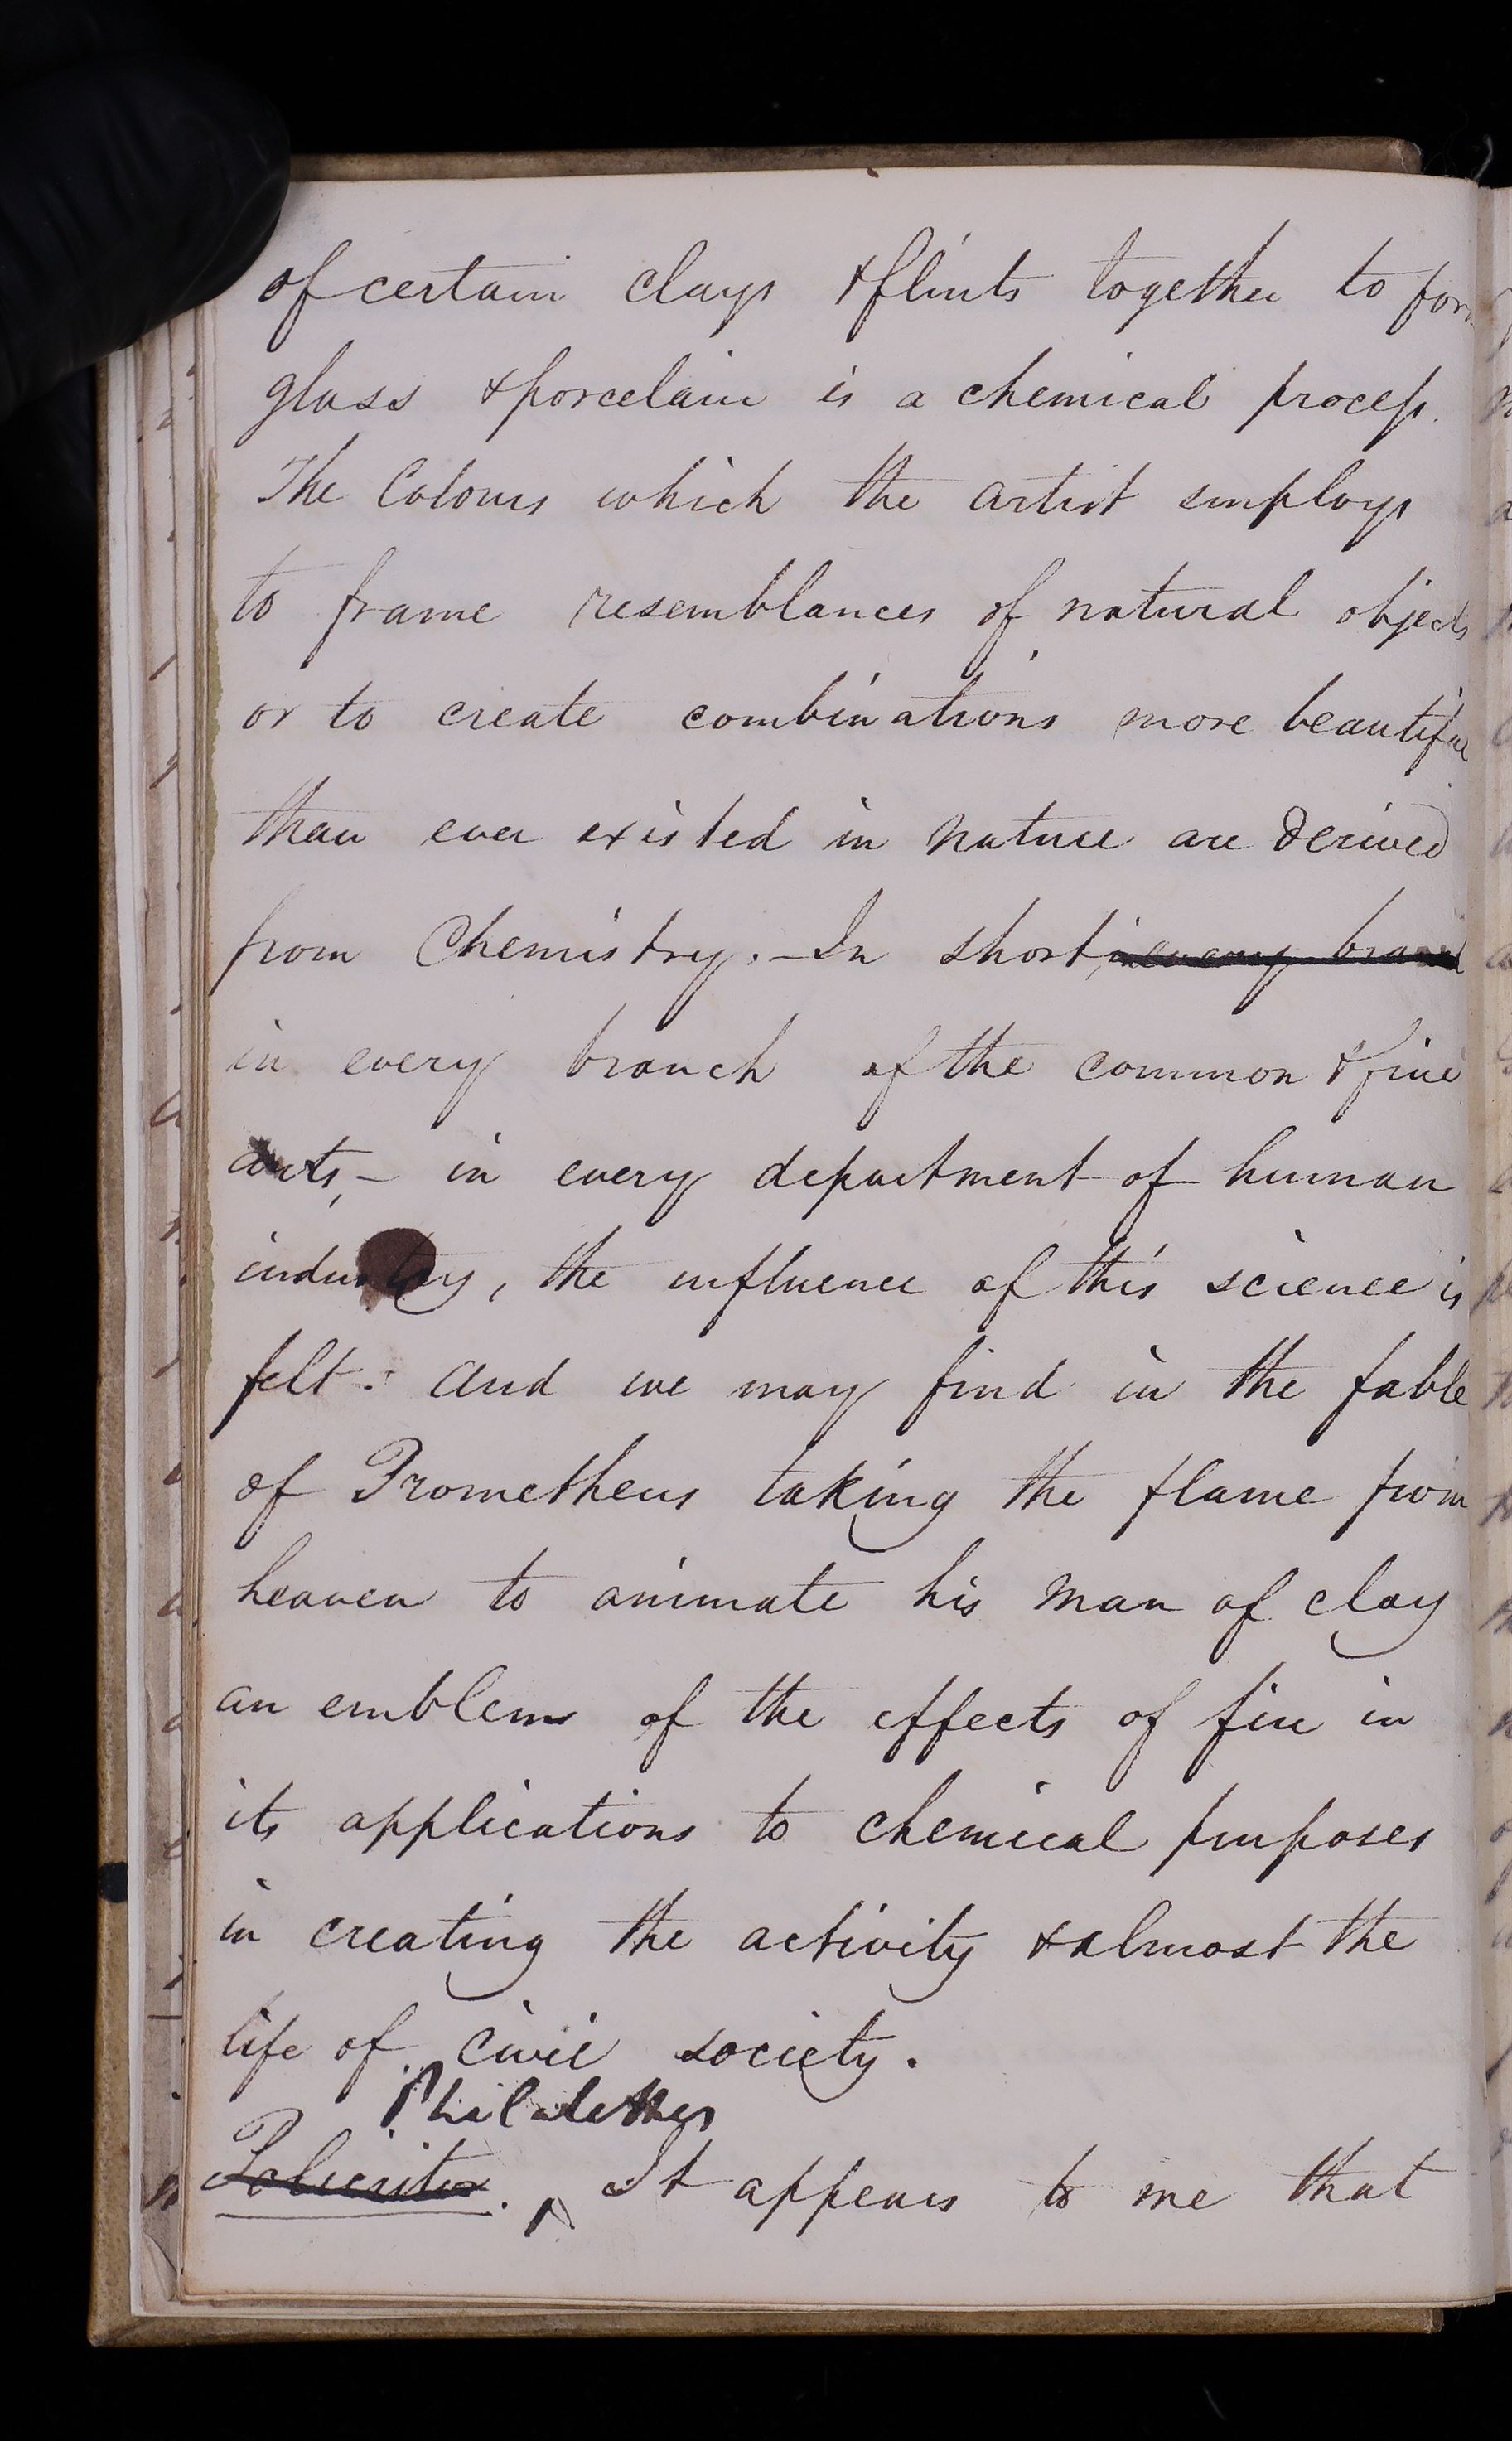 of certain clays & flints together to form
glass & porcelain is a chemical process.
The Colours which the artist employs
to frame resemblances of natural objects
or to create combinations more beautiful
than ever existed in nature are derived
from Chemistry. – In short, in every branch
in every branch of the common & fine
arts, – in every department of human
industry, the influence of this science is
felt: and we may find in the fable
of Prometheus taking the flame from
heaven to animate his man of clay
an emblem of the effects of fire in
its applications to chemical purposes
in creating the activity & almost the
life of civil society.
Philalethes
It appears to me that